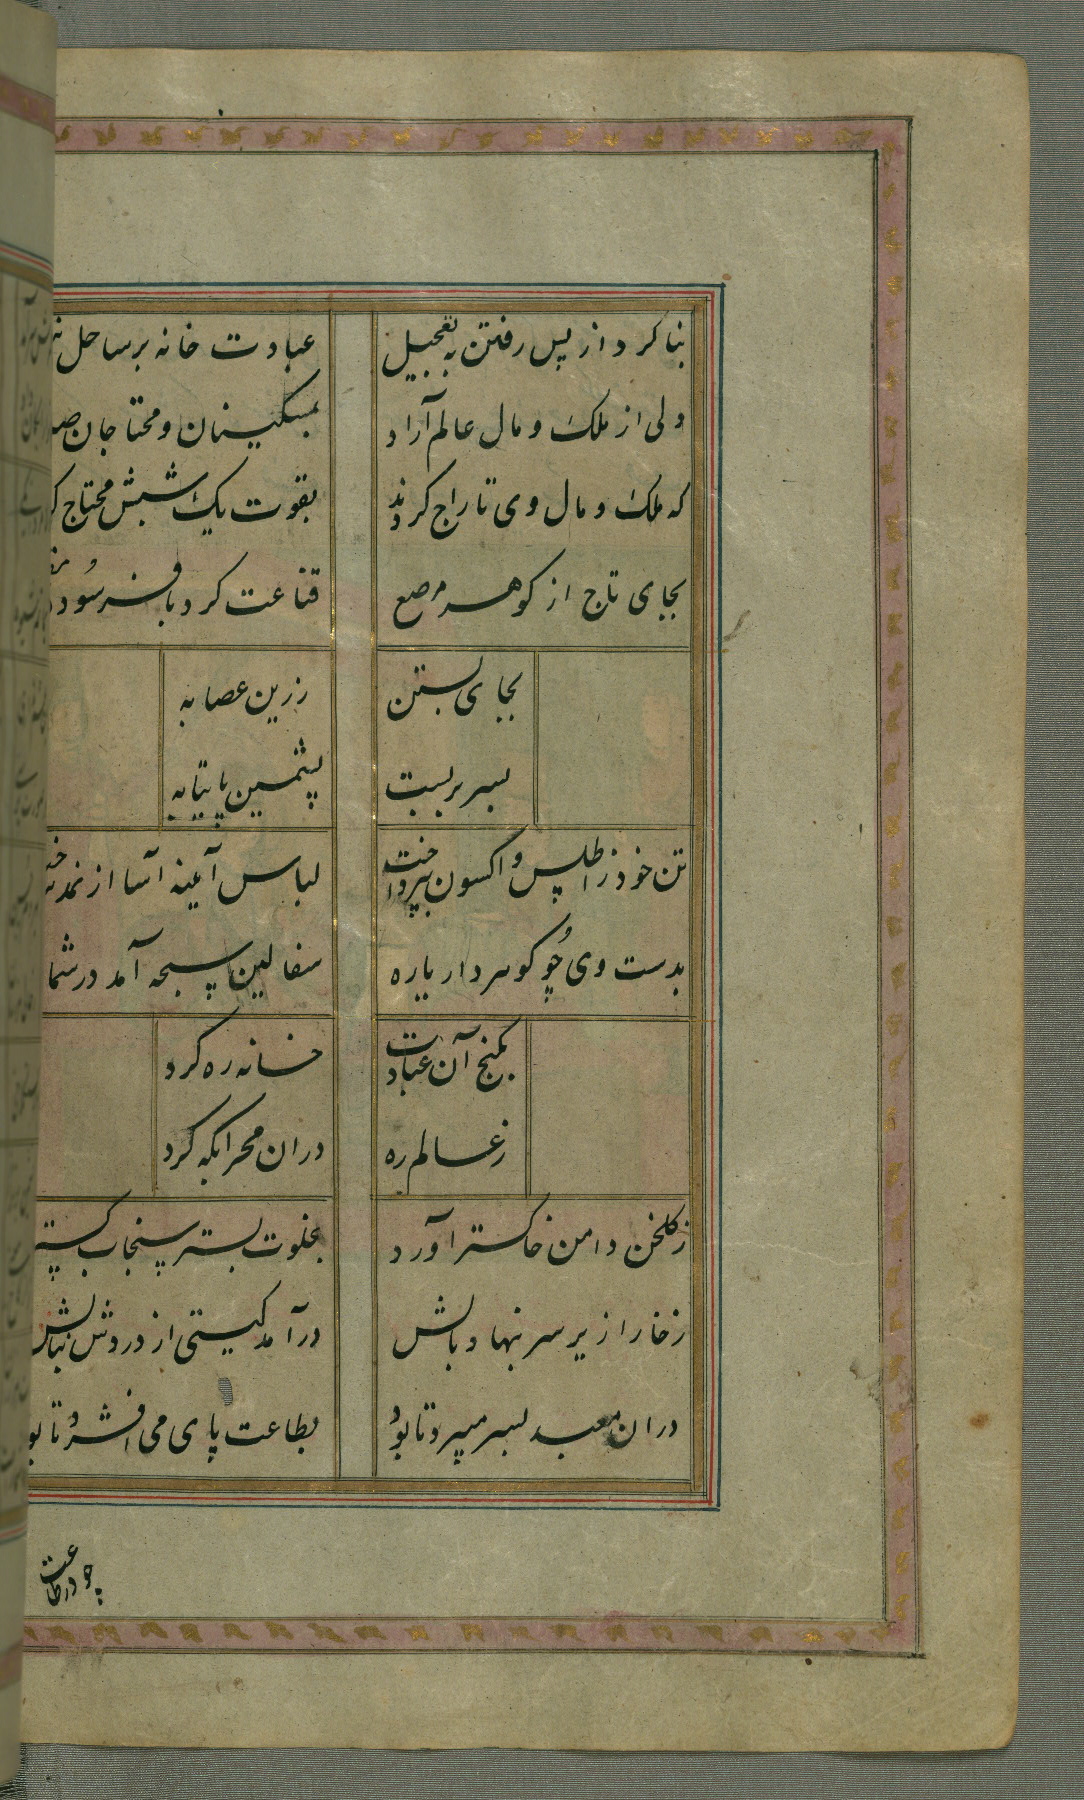 بنا کرد از پس رفتن به تعجیل عبادت خانه بر ساحل
ولی از ملک و مال عالم آزاد بمسکینان و محتاجان
که ملک و مال وی تاراج کردند بقوت یک شبش محتاج
بجای تاج از کوهر مرصع قناعت کرد با فرسوده
بجای بستن زرین عصابه
بسر بربست پشمین پایتابه
تن خود ز اطلس و اکسون بپرداخت لباس آینه آسا از نمد
بدست وی چو کوهردار یاره سفالین سبحه آمد در شما
بکنج آن عبادت خانه ره کرد
ز عالم ره دران محرابکه کرد
ز کلخن دامن خاکستر آورد بخلوت بستر سنجاب
ز خارا زیر سر بنهاد بالش درآمد کیتی از دردش بنالش
دران معبد بسر میبرد تا بود بطاعت پای می افشرد تا بو
چو در طاعت